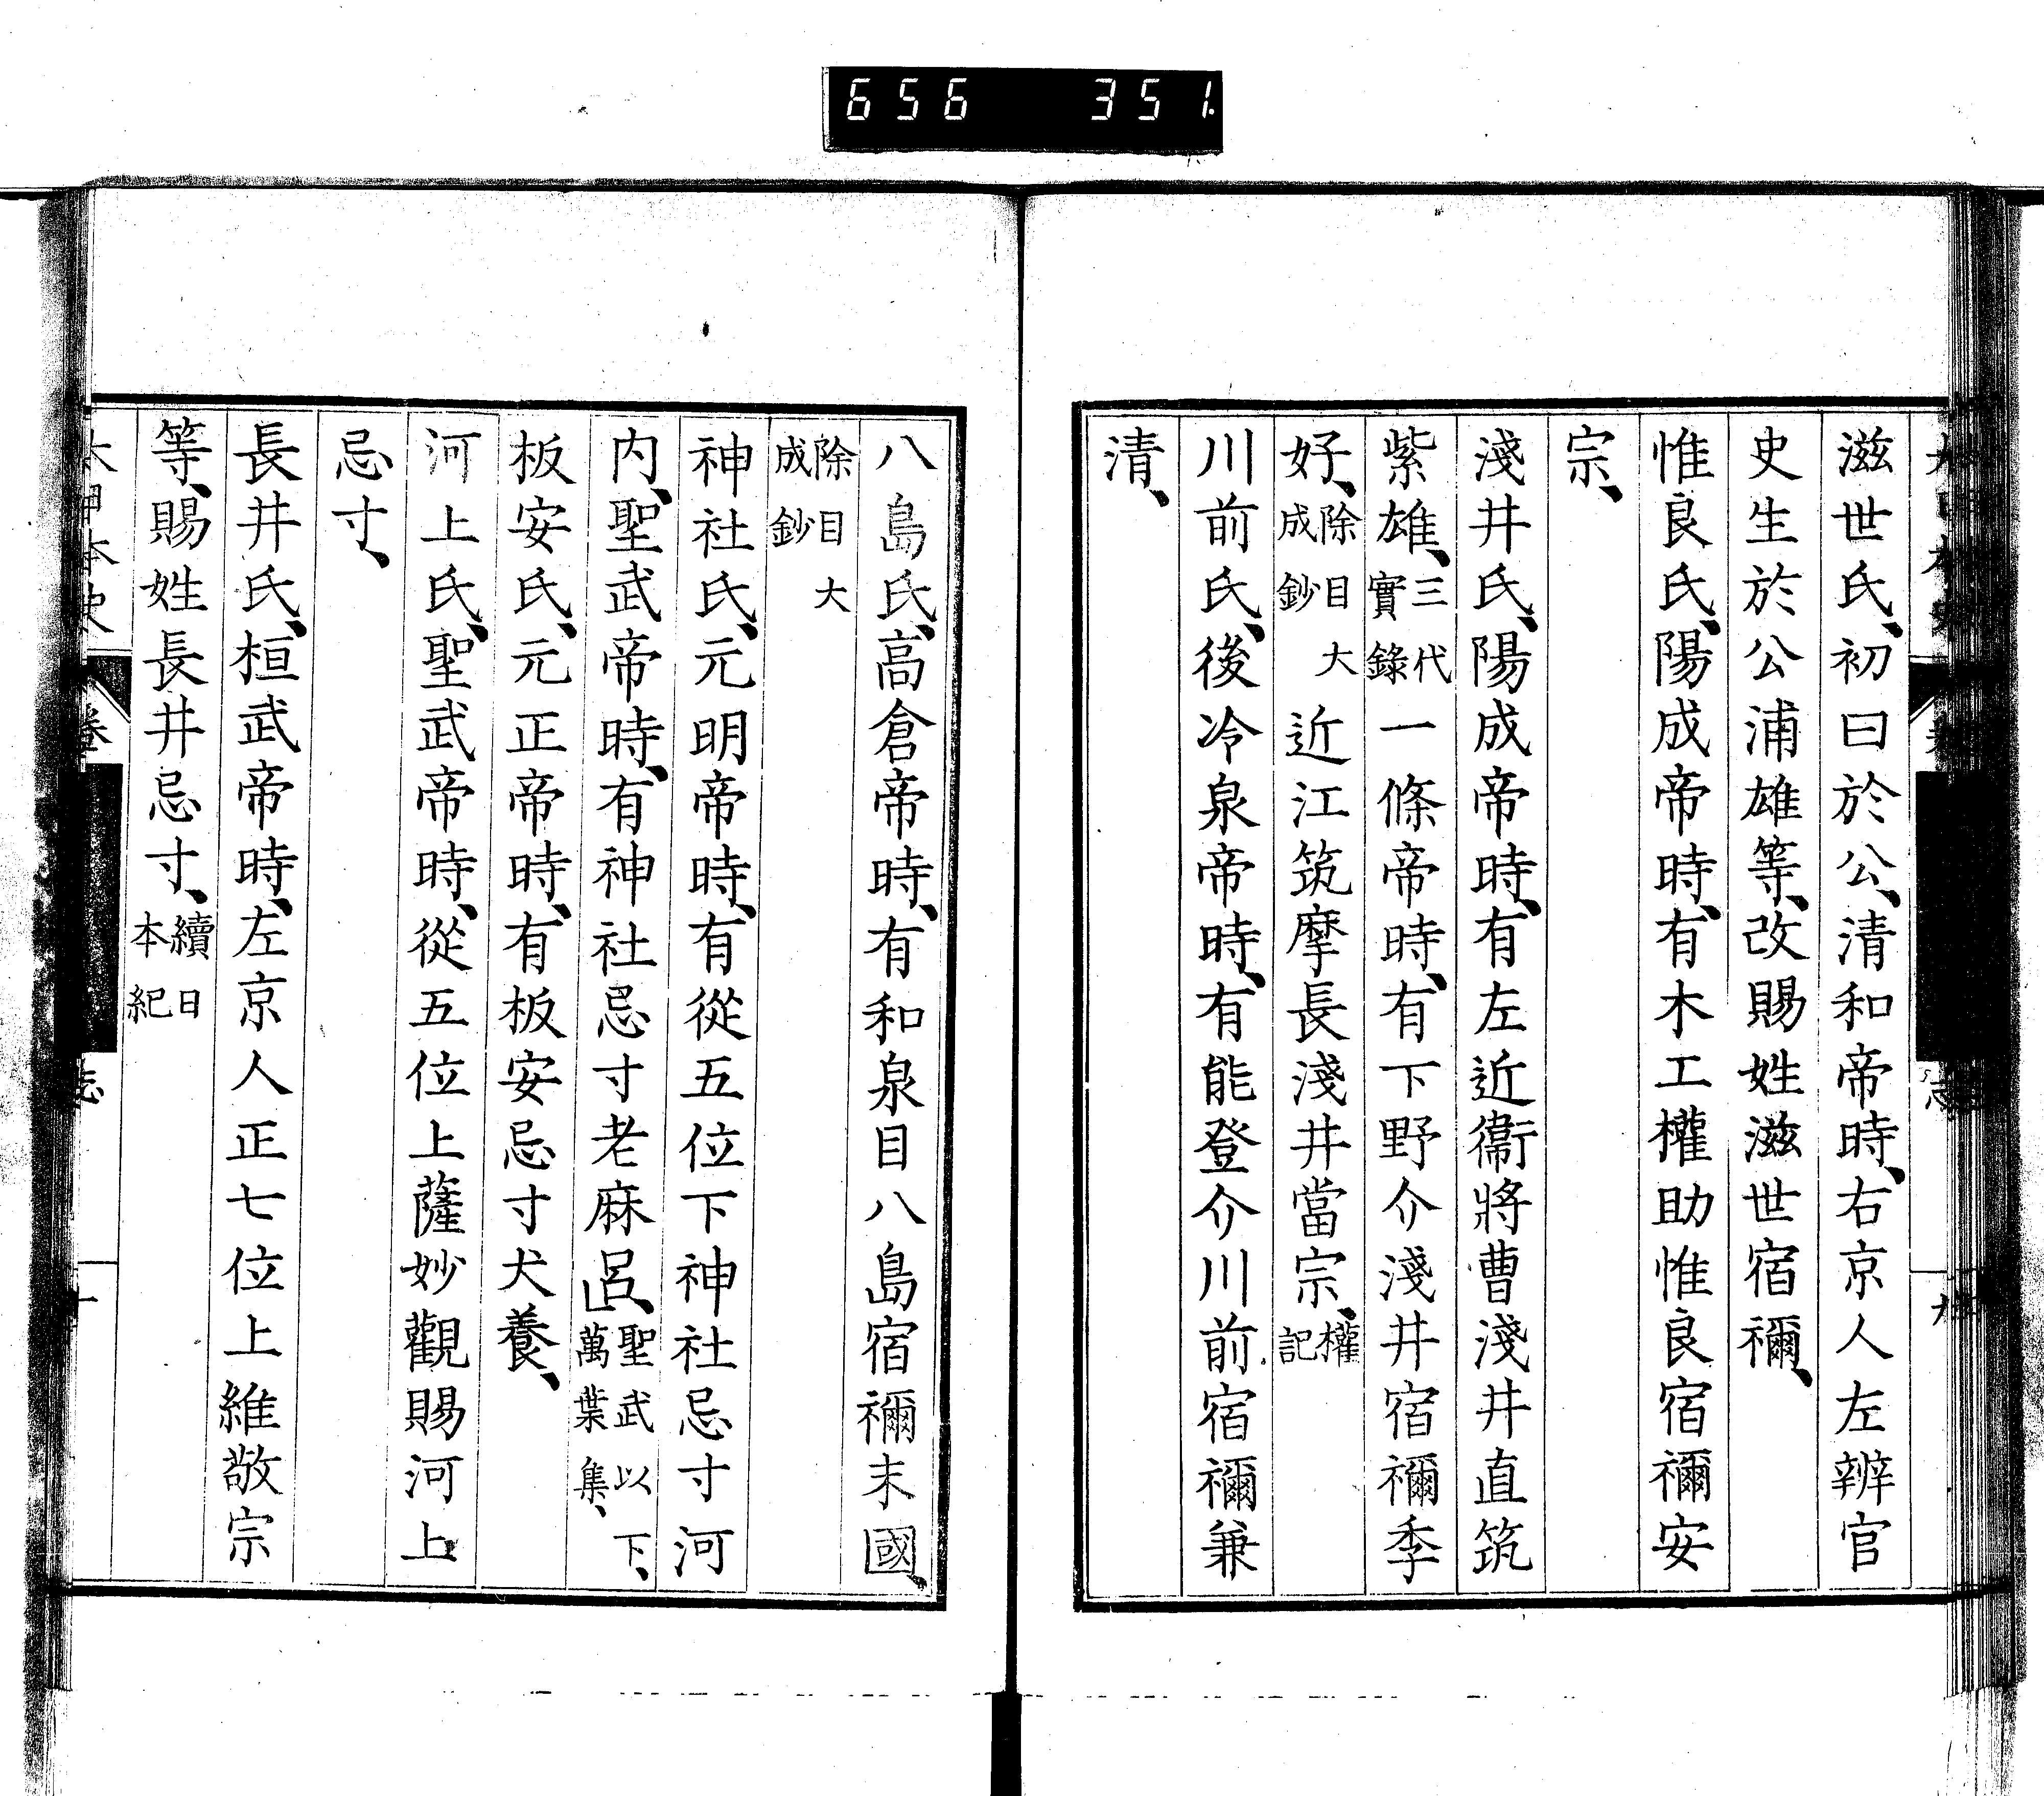 656 351
滋世氏、初曰於公、清和帝時、右京人左辨官
史生於公浦雄等、改賜姓滋世宿禰、
惟良氏、陽成帝時、有木工權助惟良宿禰安
宗、
淺井氏、陽成帝時、有左近衞將曹淺井直筑
紫雄、三代實錄一條帝時、有下野介淺井宿禰季
好、除目大成鈔近江筑摩長淺井當宗、權記
川前氏、後冷泉帝時、有能登介川前宿禰兼
清、
八島氏、高倉帝時、有和泉目八島宿禰末國、
除目大成鈔
神社氏、元明帝時、有從五位下神社忌寸河
内、聖武帝時、有神社忌寸老麻呂、聖武以下、萬葉集、
板安氏、元正帝時、有板安忌寸犬養、
河上氏、聖武帝時、從五位上薩妙觀賜河上
忌寸、
長井氏、桓武帝時、左京人正七位上維敬宗
等、賜姓長井忌寸、續日本紀
本史
卷
志